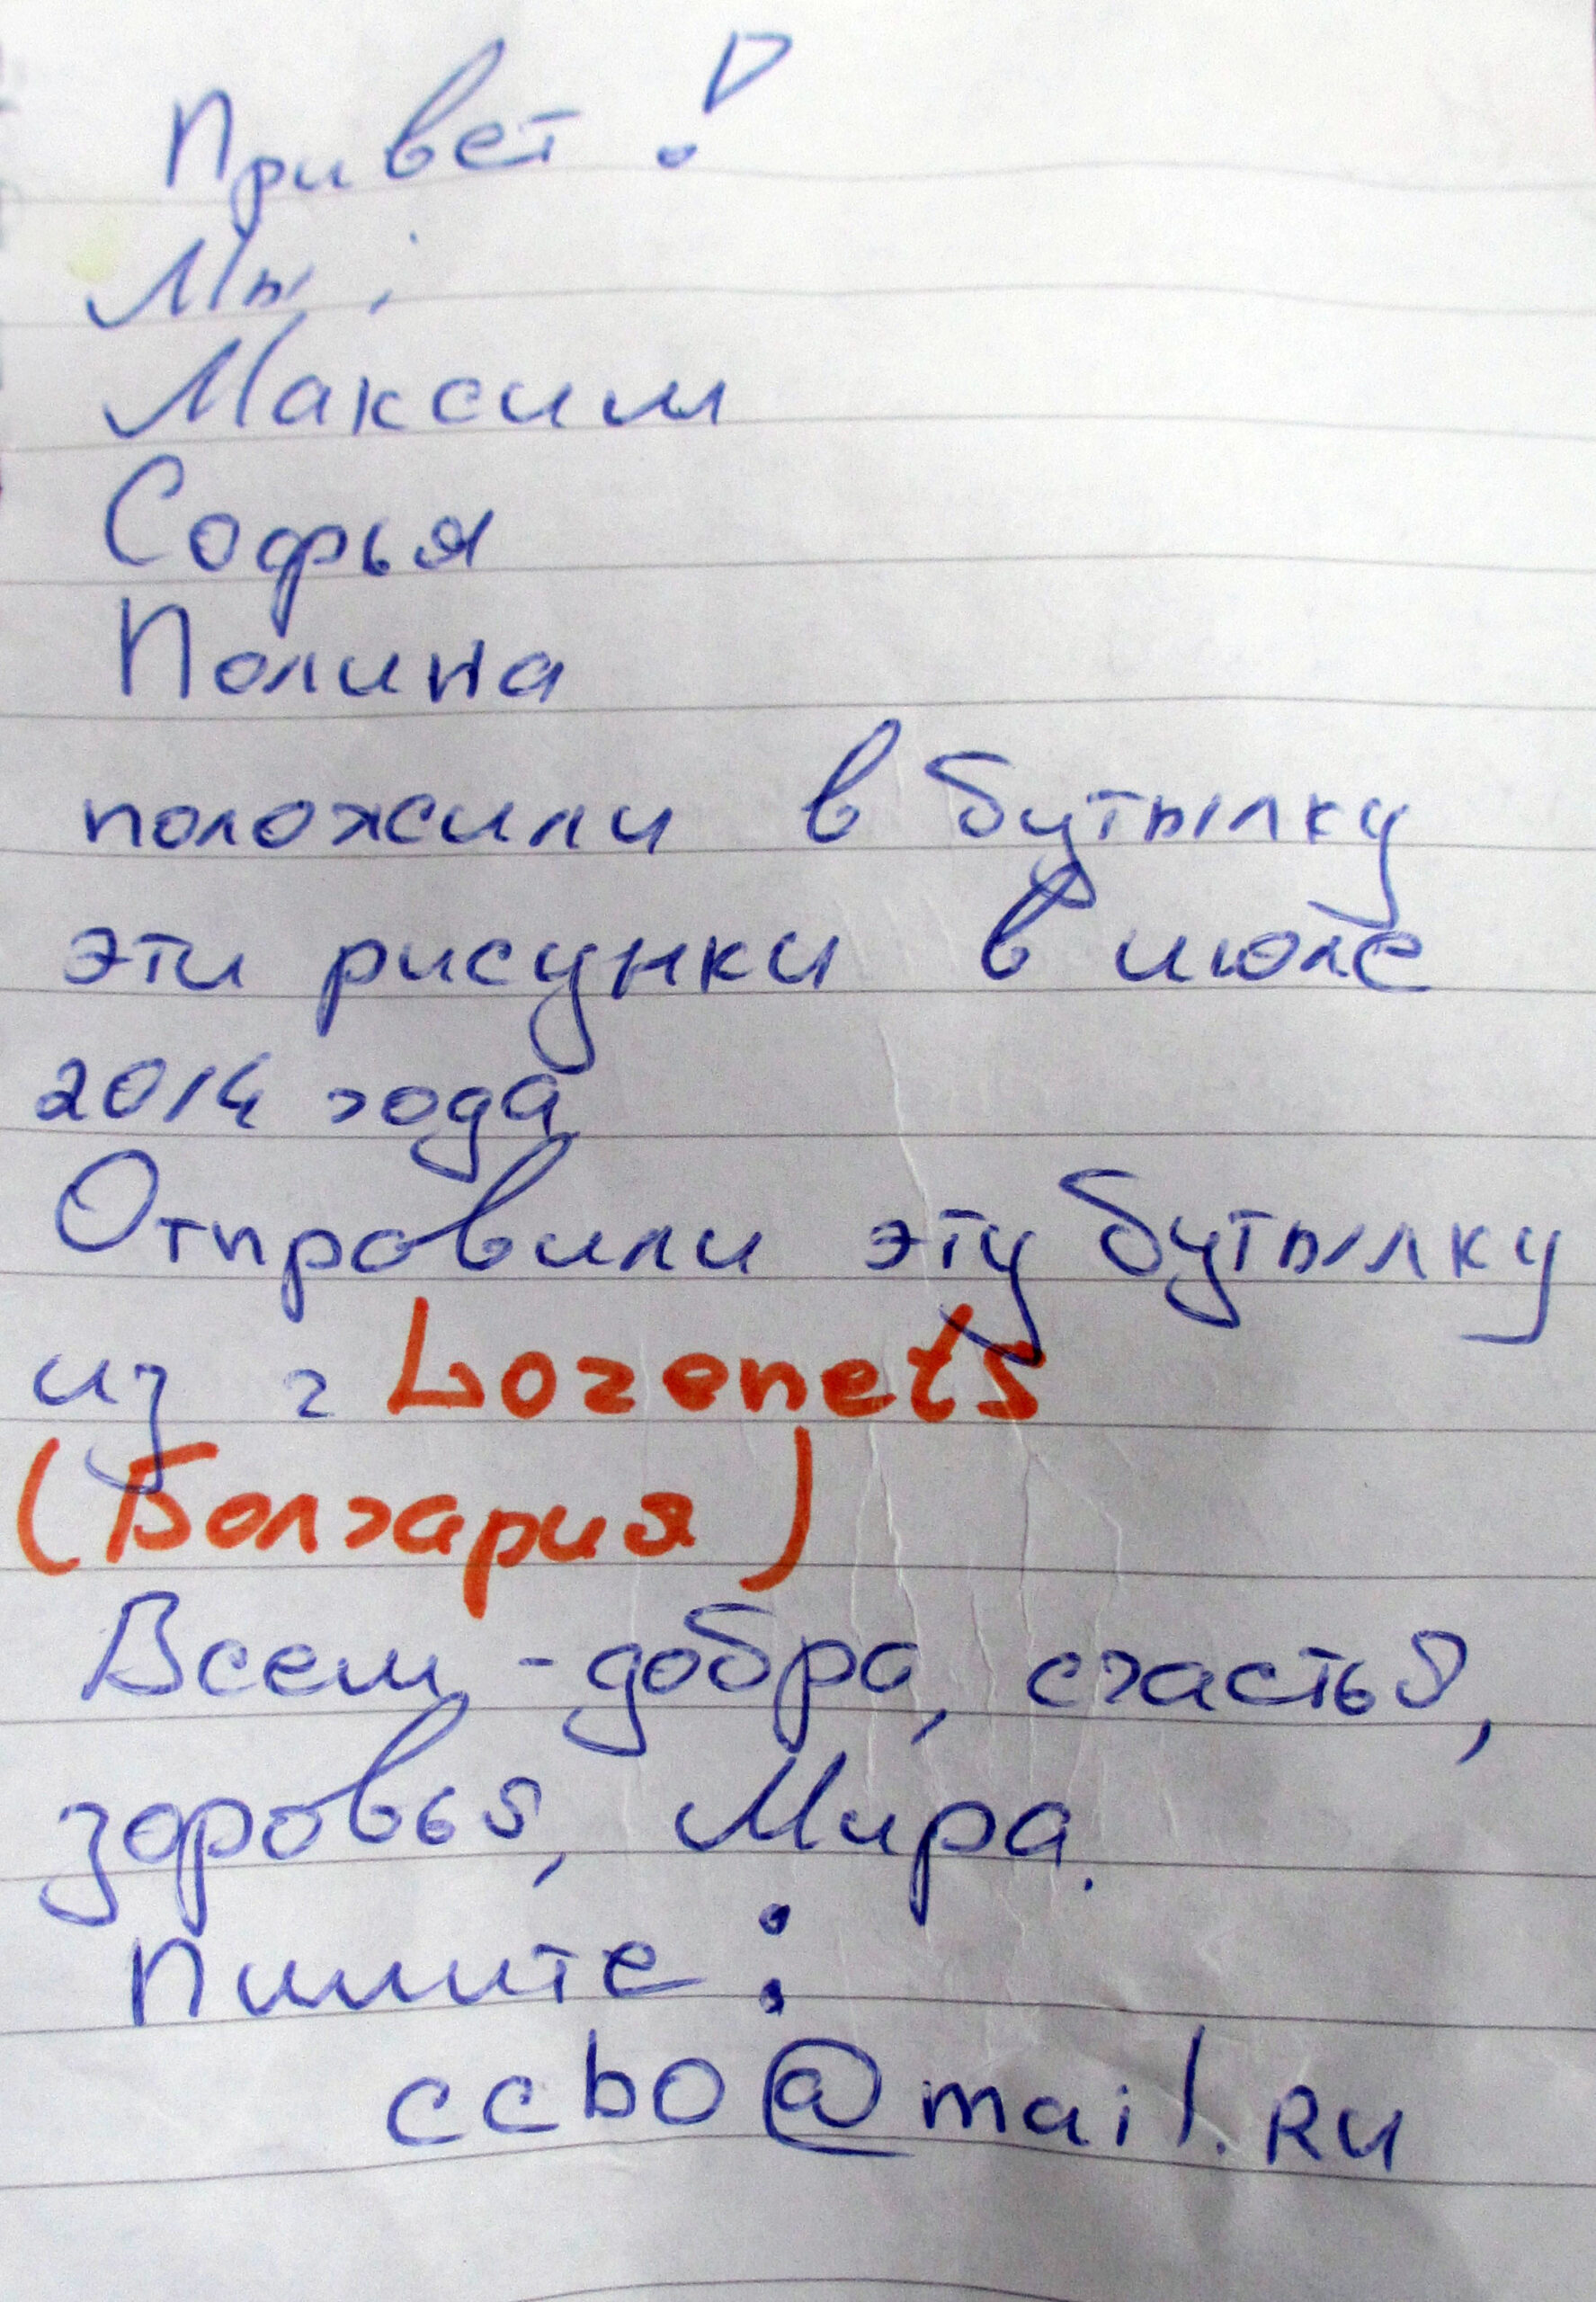 Привет!
Мы:
Максим
Софья
Полина
положили в бутылку
эти рисунки в июле
2014 года
Отправили эту бутылку
из г Lozenets
(Болгария)
Всем - добра, счастья,
здоровья, Мира.
Пишите:
ccbo@mail.Ru